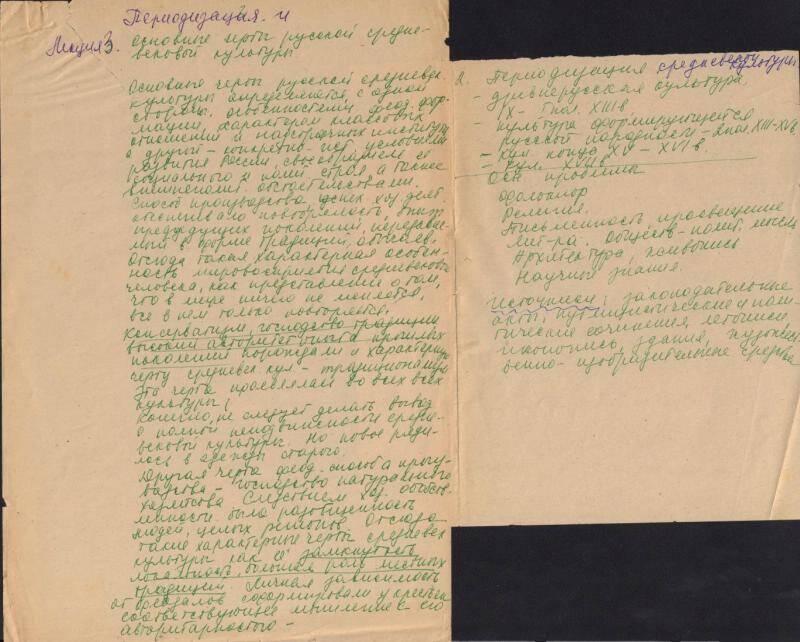 Периодизация. и
Лекция 3. Основные черты русской средне-
вековой культуры
Основные черты русской средневек.
культуры определяется, с одной
стороны, особенностями феод. фор-
мации, характером классовых
отношений и надстроечных институтов
с другой - конкретно-ист. условиями
развития России, своеобразием её
социального и полит. строя, а также
внешнеполит. обстоятельствами.
Способ производства хоз. деят.
повторяемость, опыт
предыдущих поколений, передавае-
мый в форме традиции, обычаев.
Отсюда такая характерная особен-
ность мировосприятия средневеков.
человека, как представление о том,
что в мире ничего не меняется,
все в нем только повторяется.
Консерватизм, господство традиции
высокий авторитет опыта прошлых
поколений порождали и характерную
черту средневек. кул. - традиционализм
Эта черта проявлялась во всех
культуры!
Конечно, не следует делать вывод
о полной неподвижности средне-
вековой культуры. Но новое ряди-
лось в одежды старого.
Другая черта феод. способа произ-
водства - господство натурального
хозяйства Следствием хоз.
была разобщенность
людей, целых регионов. Отсюда
такие характерные черты средневек
культуры как её замкнутость
локальность, большая роль местных
традиций. Личная зависимость
от феодалов сформировали у крестьян
соответствующее мышление с его
авторитарностью -
2. Периодизация средневеков культуры
- древнерусская культура,
IX - I пол. XIII в
- культура формирующейся
русской народности - 2 пол. XIII-XV в.
- кул. конца XV - XVI в.
- кул. XVII в.
Осн. проблемы
Фольклор
Религия.
Письменность, просвещение
Лит-ра. Обществ-полит. мысль
Архитектура, живопись
Научные знания.
Источники: законодательные
акты, публицистические и поли-
тические сочинения, летописи,
иконопись, здания, художест-
венно-изобразительные средства